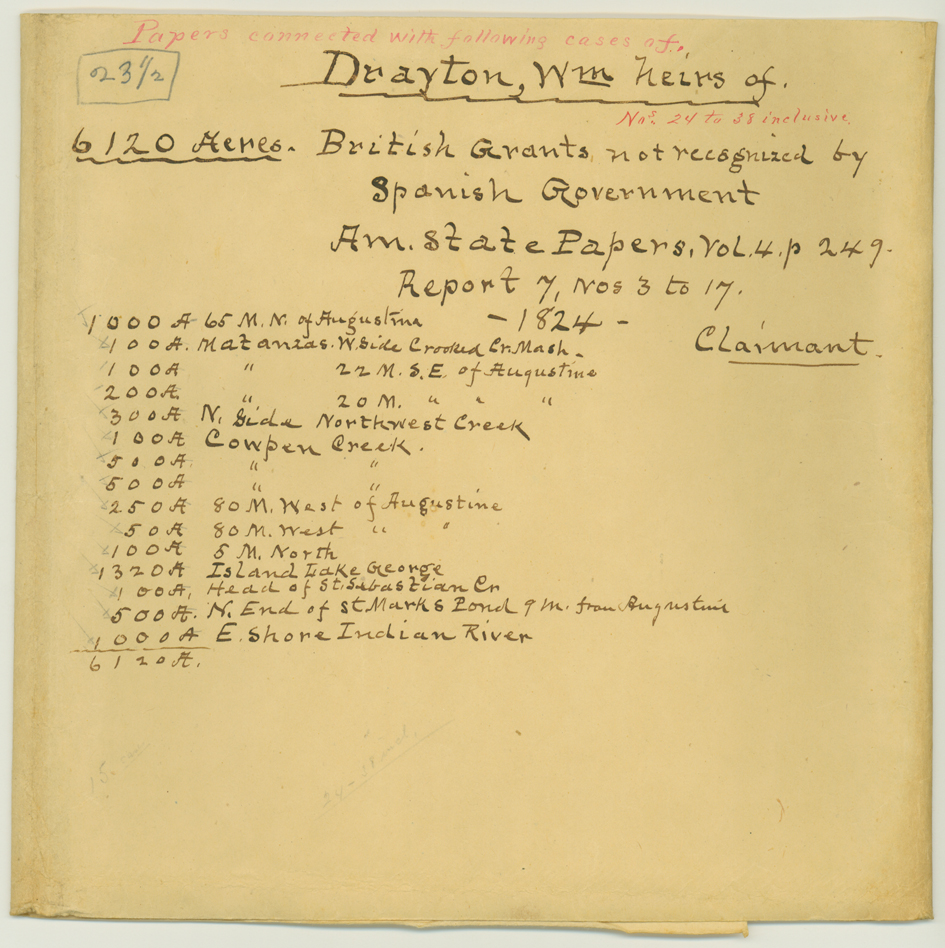 Papers connected with following cases of.
23 1/2
Drayton, Wm Heirs of.
Nos. 24 to 38 inclusive.
6120 Acres. British Grants not recognized by
Spanish Government
Am. State Papers. Vol. 4. p 249.
Report 7, Nos 3 to 17.
- 1824 -
Claimant.
1000 A 65 M. N. of Augustina
100 A. Matanzas. W. Side Crooked Cr. Mash.
100 A " 22 M. S. E. of Augustine
200 A. " 20 M. " " "
300 A N. Side Northwest Creek
100 A Cowpen Creek.
500 A " "
500 A " "
250 A 80 M. West of Augustine
50 A 80 M. West " "
100 A 5 M. North
1320 A Island Lake George
100 A, Head of St. Sebastian Cr
500 A. N. End of St Marks Pond 9 m. from Augustine
1000 A E. Shore Indian River
6120 A.